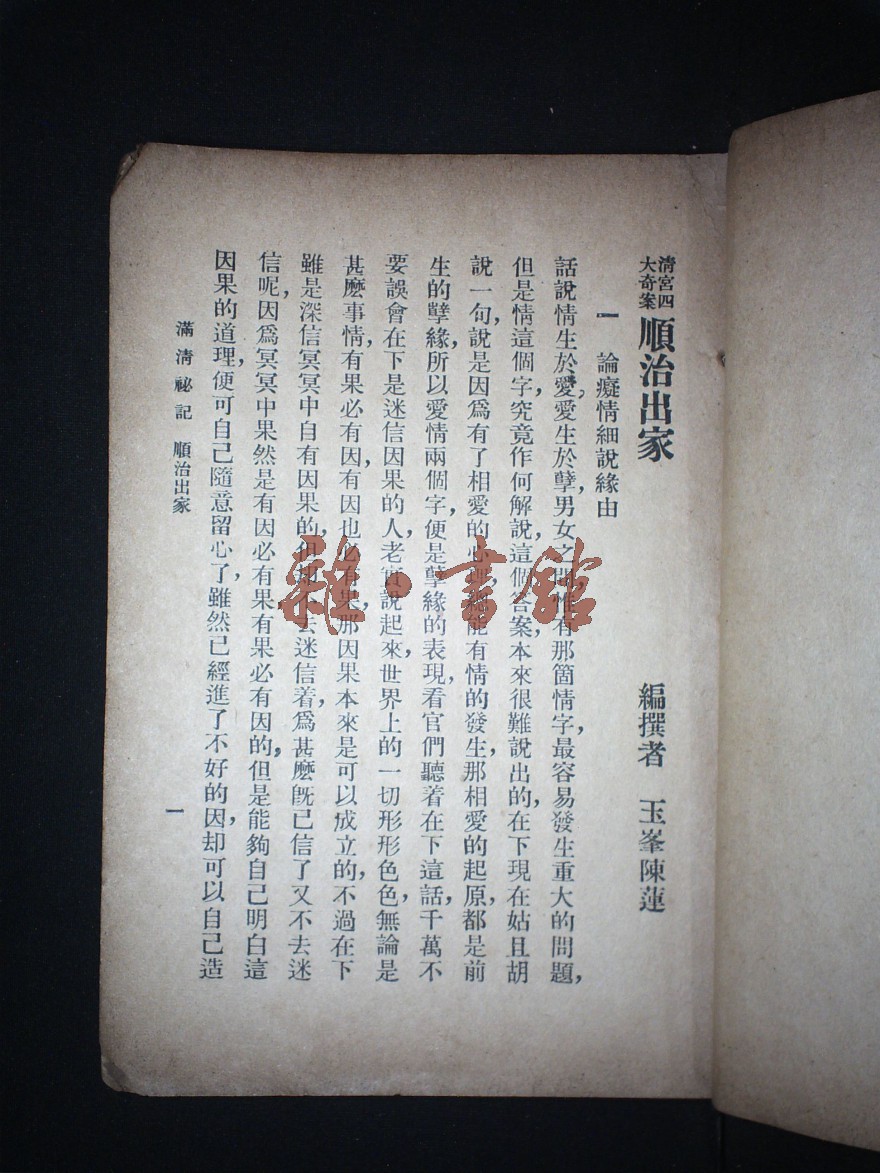 清宮四大奇案
順治出家
編撰者 玉峯陳蓮
一 論癡情細說緣由
話說情生於愛,愛生於孽,男女之間,惟有那箇情字,最容易發生重大的問題,
但是情這個字,究竟作何解說,這個答案,本來很難說出的,在下現在姑且胡
說一句,說是因爲有了相愛的心理,纔能有情的發生,那相愛的起原,都是前
生的孽緣,所以愛情兩個字,便是孽緣的表現,看官們聽着在下這話,千萬不
要誤會在下是迷信因果的人,老實說起來,世界上的一切形形色色,無論是
甚麽事情,有果必有因,有因也必有果,那因果本來是可以成立的,不過在下
雖是深信冥冥中自有因果的,但却不去迷信着,爲甚麽旣已信了又不去迷
信呢,因爲冥冥中果然是有因必有果有果必有因的,但是能夠自己明白這
因果的道理,便可自己隨意留心了,雖然已經進了不好的因,却可以自己造
滿淸祕記 順治出家
一
雜·書館